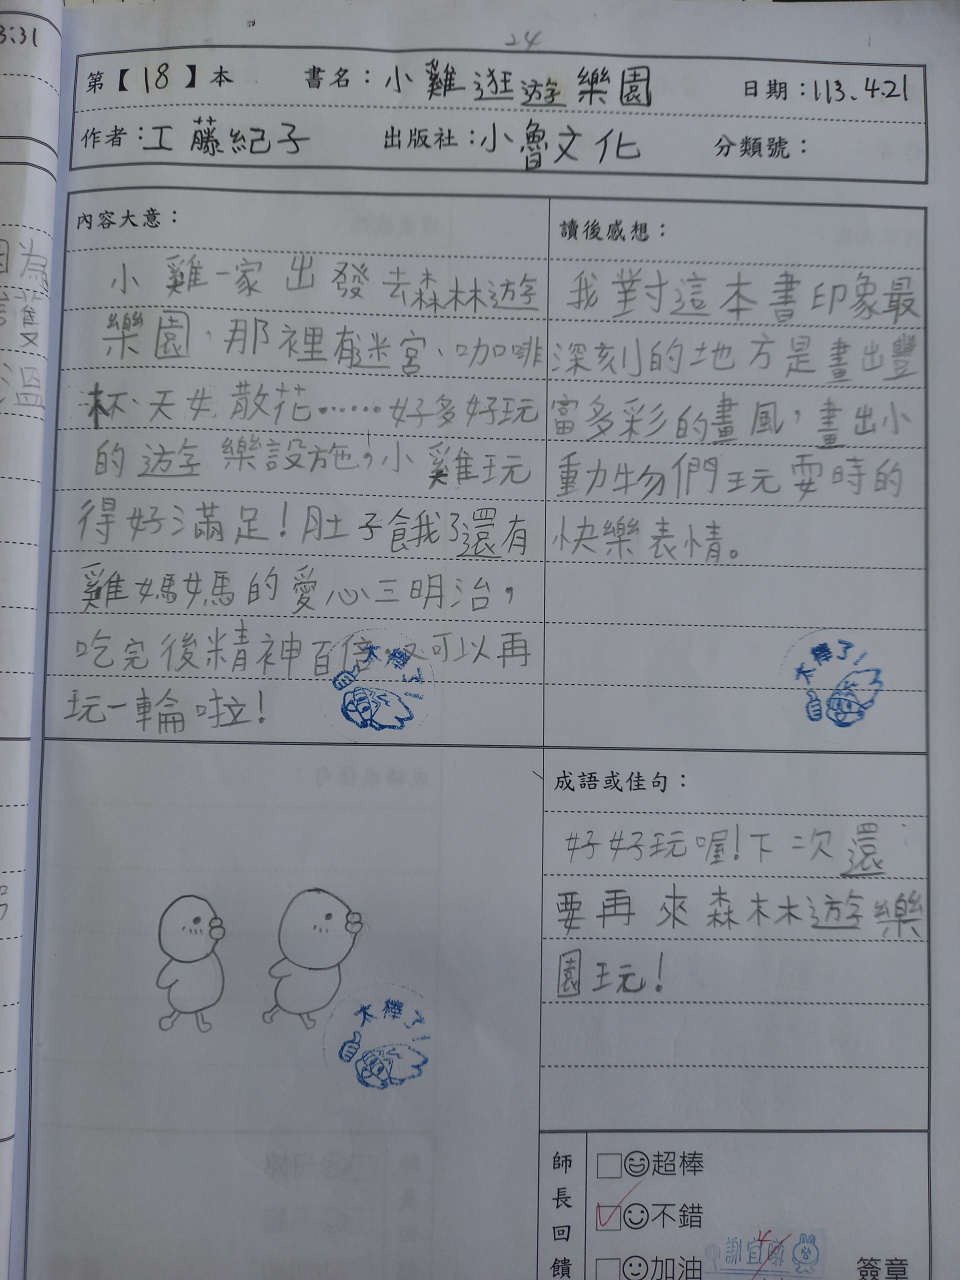 24
第【18】本 書名：小雞逛遊樂園 日期：113.4.21
作者：工藤紀子 出版社：小魯文化 分類號：
內容大意：
小雞一家出發去森林遊
樂園，那裡有迷宮、咖啡
杯、天女散花……好多好玩
的遊樂設施，小雞玩
得好滿足！肚子餓了還有
雞媽媽的愛心三明治，
吃完後精神百倍，又可以再
玩一輪啦！
太棒了
讀後感想：
我對這本書印象最
深刻的地方是畫出豐
富多彩的畫風，畫出小
動物們玩耍時的
快樂表情。
太棒了！
太棒了！
成語或佳句：
好好玩喔！下次還
要再來森林遊樂
園玩！
師長回饋
超棒
不錯
加油
簽章